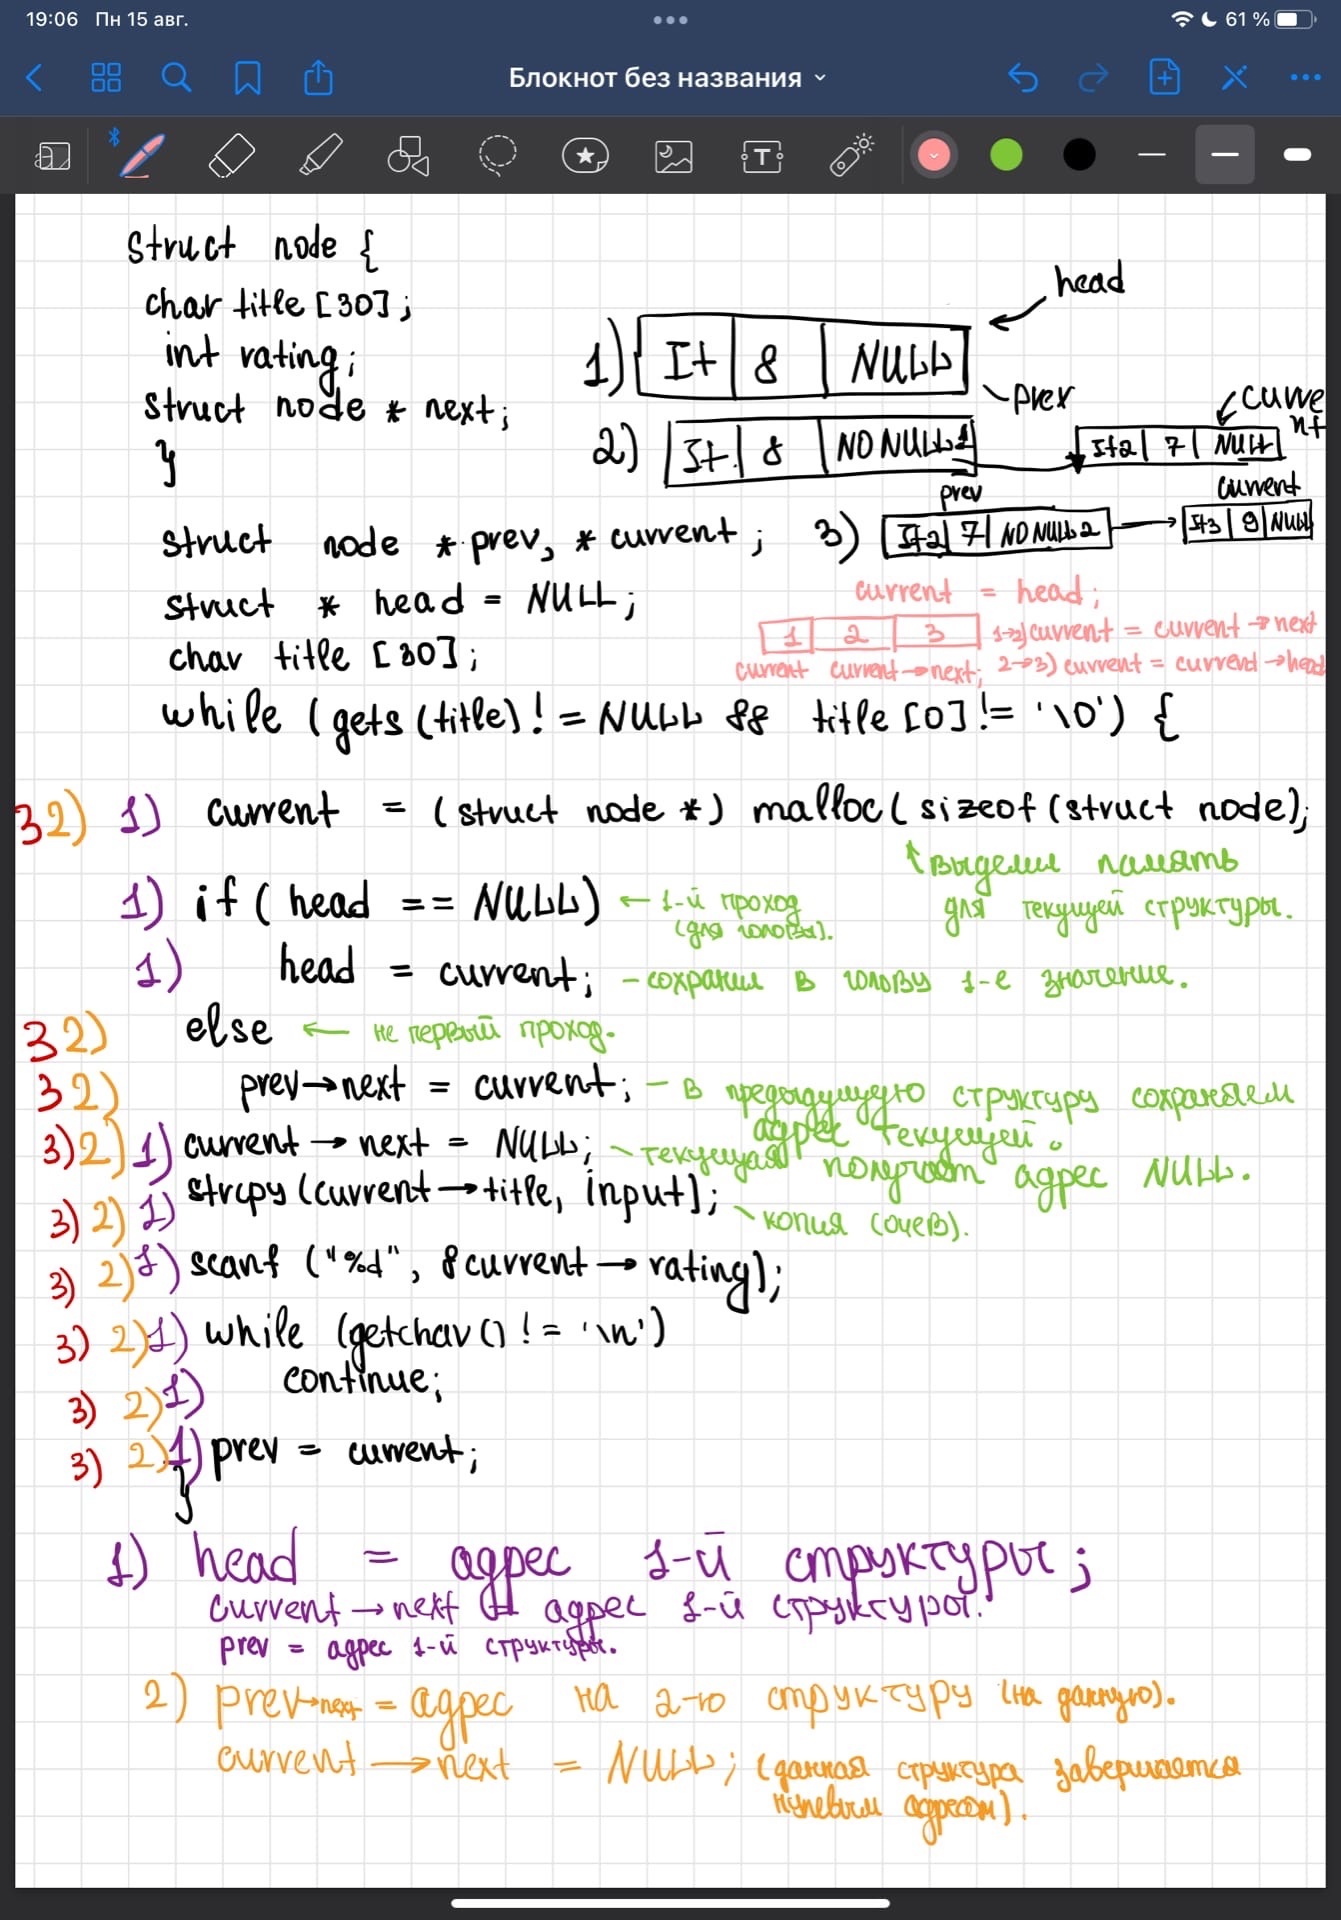 19:06 Пн 15 авг.
61 %
Блокнот без названия
struct node {
char title [30];
int rating;
struct node * next;
}
head
1) It 8 NULL
prev
current
2) It. 8 NO NULL1 It2 7 NULL
prev
current
3) It2 7 NO NULL2 It3 9 NULL
struct node * prev, * current;
struct * head = NULL;
char title [30];
current = head;
1 2 3 1→2) current = current → next
current current→next; 2→3) current = current→head
while (gets (title) != NULL && title [0] != '\0') {
3 2) 1) current = (struct node *) malloc (sizeof (struct node);
↑ выделили память
для текущей структуры.
1) if ( head == NULL) ← 1-й проход
(для головы).
1) head = current; – сохранил в голову 1-е значение.
3 2) else ← не первый проход.
3 2) prev→next = current; – в предыдущую структуру сохраняем
адрес текущей.
3) 2) 1) current → next = NULL; – текущая получает адрес NULL.
3) 2) 1) strcpy (current→title, input];
копия (очев).
3) 2) 1) scanf ("%d", &current→rating);
3) 2) 1) while (getchar () != '\n')
3) 2) 1) continue;
3) 2) 1) prev = current;
}
1) head = адрес 1-й структуры;
current → next = адрес 1-й структуры.
prev = адрес 1-й структуры.
2) prev→next = адрес на 2-ю структуру (на данную).
current → next = NULL; (данная структура завершается
нулевым адресом).